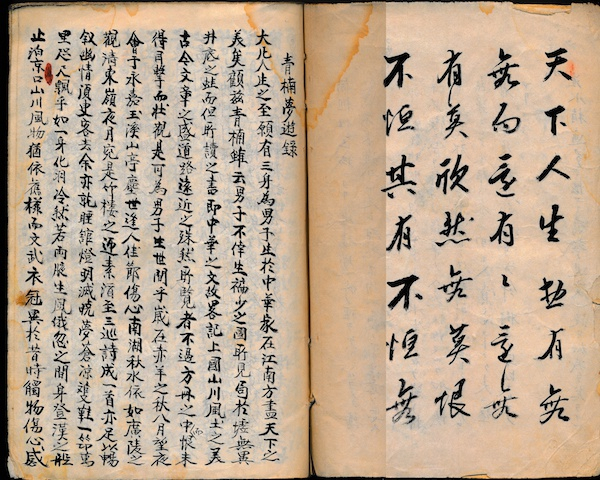 天下人生有無
無而還有〻還無
有莫欣然無莫恨
不恒其有不恒無
青楠夢遊錄
大凡人生之至願有三身為男子生於中華家在江南方盡天下之
美矣顧茲青楠雖云男子不倖生褊少之國所見局於墟無異
井底之蛙而但所讀之書即中華之文故畧記上國山川風土之美
古今文章之盛道路遠近之殊然所覽者不過方冊之中而恨未
得而壯觀是可為男子生世間乎歲在赤羊之秋八月望夜
會于永嘉玉溪山亭塵世逢人佳節傷心南湖秋水依如廣陵之
觀濤東嶺夜月宛是竹樓之迎素酒至三巡詩成一首亦足以暢
叙幽情須臾客去余亦就睡館燈明滅曉夢蒼凉雙鞋一筇萬
里咫尺飄乎如一身化羽冷然若兩腋生風俄忽之間身登漢之船
止泊京口山川風物猶依舊樣而文武衣冠異於昔時觸物傷心感